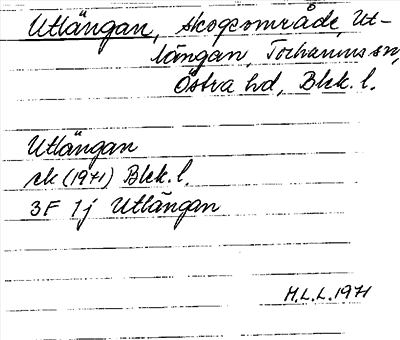 Utlängan, skogsområde, Ut-
längan, Torhamns sn,
Östra hd, Blek. l.
Utlängan
ek (1971) Blek. l.
3F 1j Utlängan
H.L.L. 1971